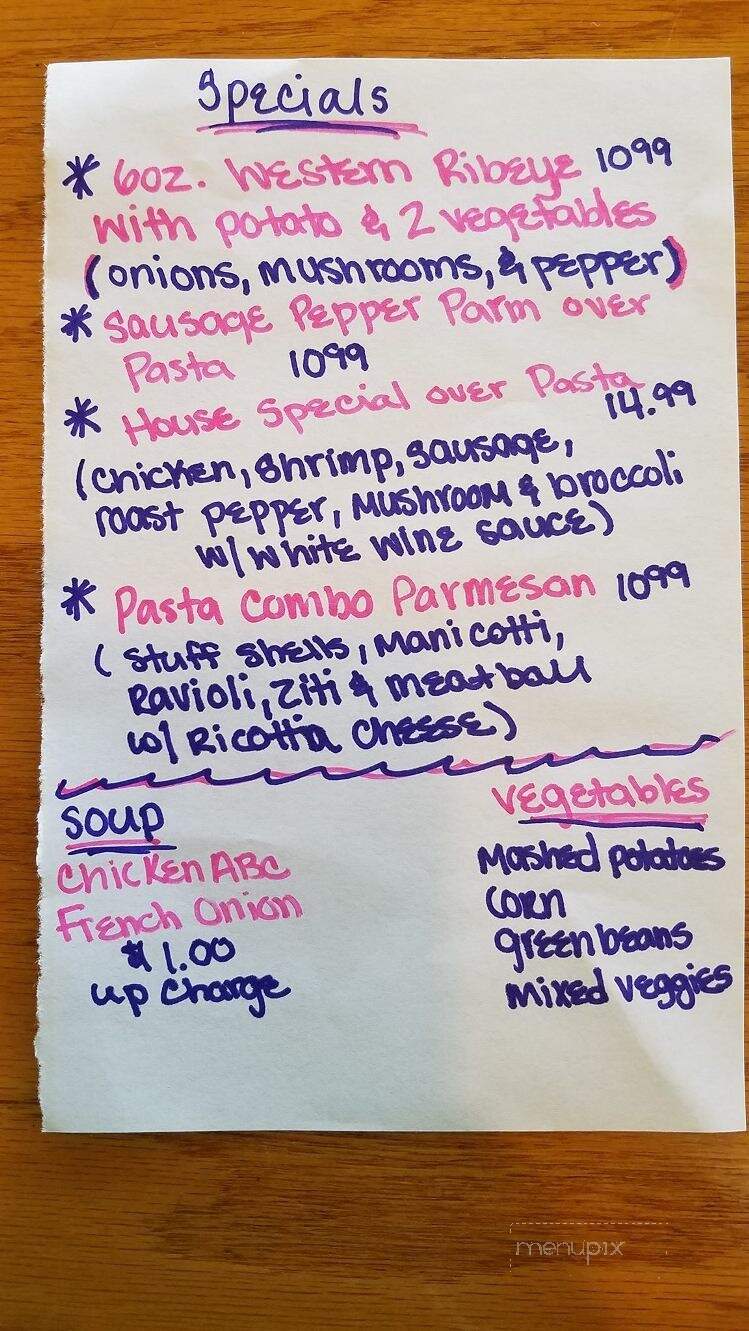 Specials
* 6oz. Western Ribeye 1099
with potato & 2 vegetables
(onions, mushrooms, & pepper)
* Sausage Pepper Parm over
Pasta 1099
* House Special over Pasta
14.99
(chicken, shrimp, sausage,
roast pepper, mushroom & broccoli
w/ white wine sauce)
* Pasta Combo Parmesan 1099
(stuff shells, Manicotti,
Ravioli, Ziti & meatball
w/ Ricotta cheese)
Soup
Chicken ABC
French Onion
$1.00
up charge
Vegetables
Mashed potatoes
corn
green beans
Mixed veggies
menupix